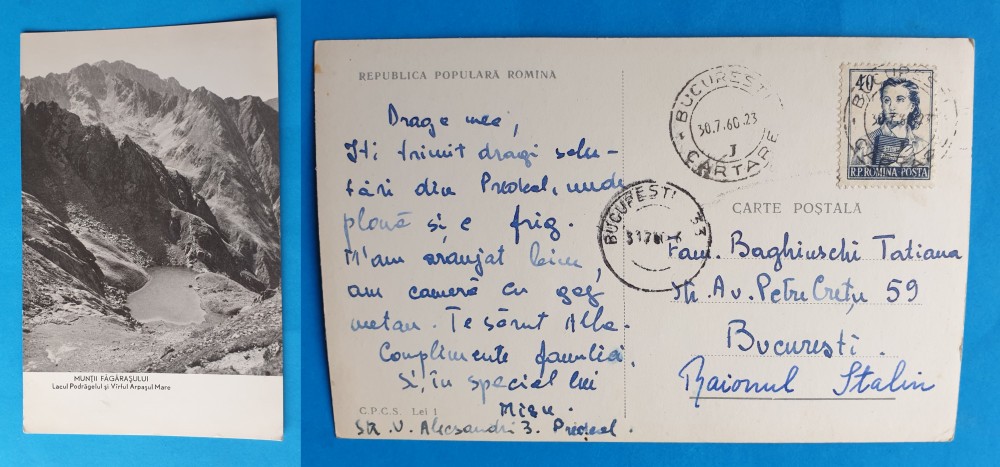 MUNȚII FĂGĂRAȘULUI
Lacul Podrăgelul și Vîrful Arpașul Mare
REPUBLICA POPULARĂ ROMINĂ
Drage mei,
Iți trimit dragi salu-
tări din Predeal, unde
plouă și e frig.
M'am aranjat bine,
am cameră cu gaz
metan. Te sărut Alba.
Complimente familiei.
Și, în special lui
Mișu.
C.P.C.S. Lei 1
Str. V. Alecsandri 3. Predeal.
BUCUREȘTI
30.7.60.23
J
CARTARE
BUCUREȘTI 33
40
R.P.ROMINA POSTA
BUCUREȘTI
CARTE POȘTALĂ
Fam. Baghiuschi Tatiana
Str. Av. Petru Crețu 59
București.
Raionul Stalin